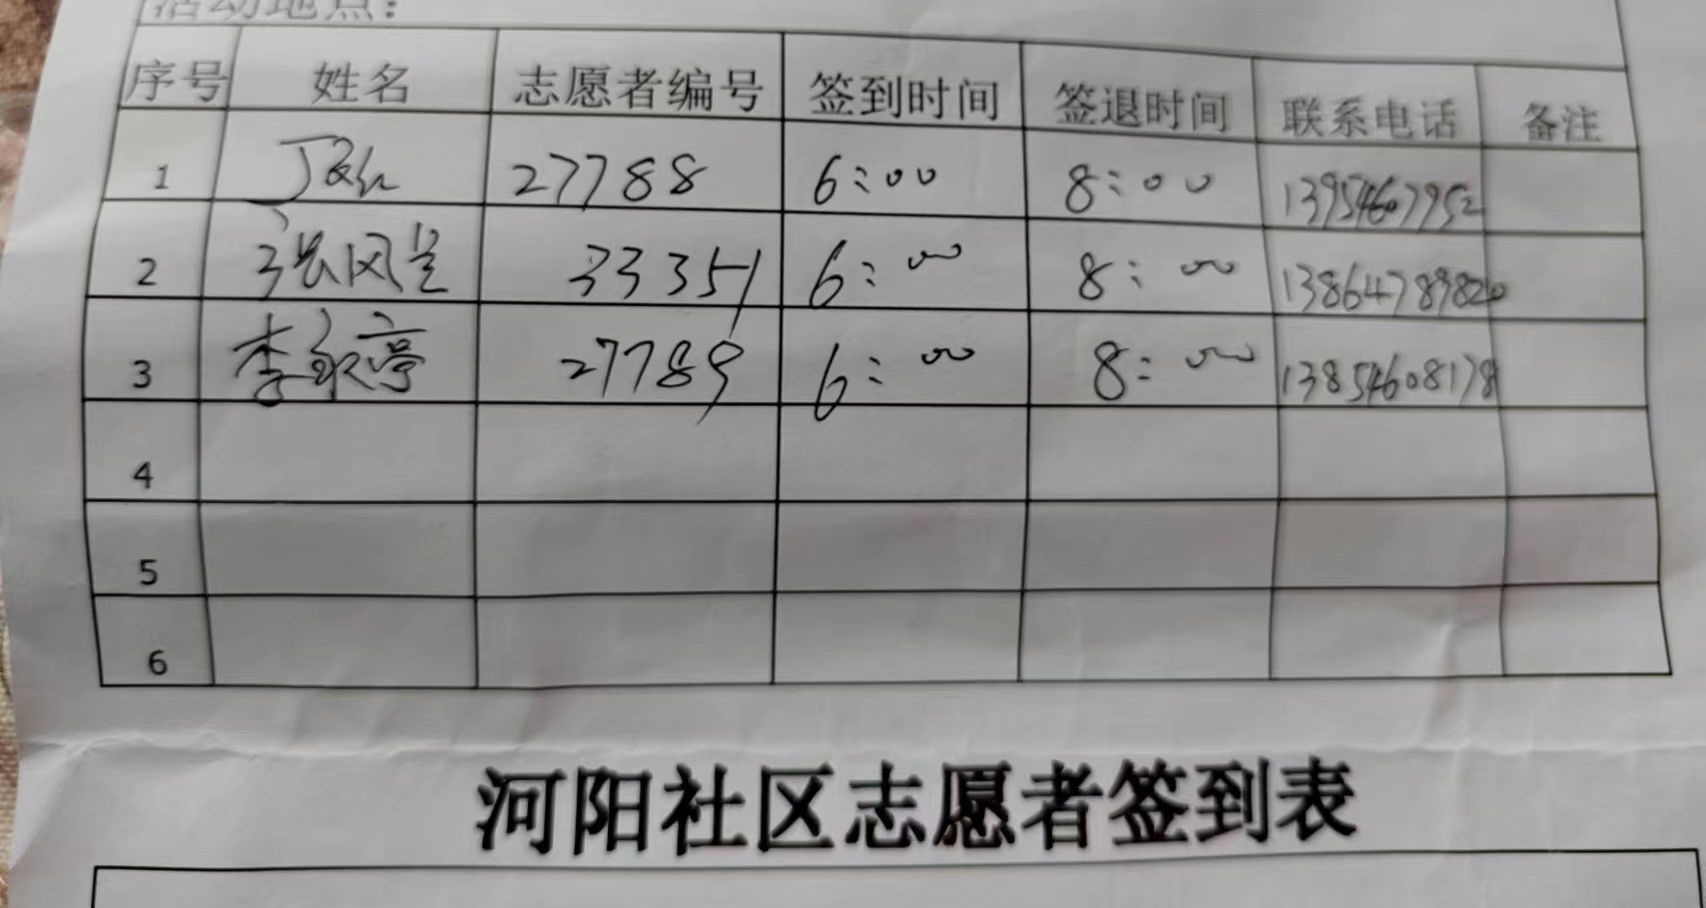 活动地点：
序号 姓名 志愿者编号 签到时间 签退时间 联系电话 备注
1 27788 6:00 8:00 13954607952
2 张风兰 33351 6:00 8:00 13864789820
3 李永亭 27789 6:00 8:00 13854608178
4
5
6
河阳社区志愿者签到表